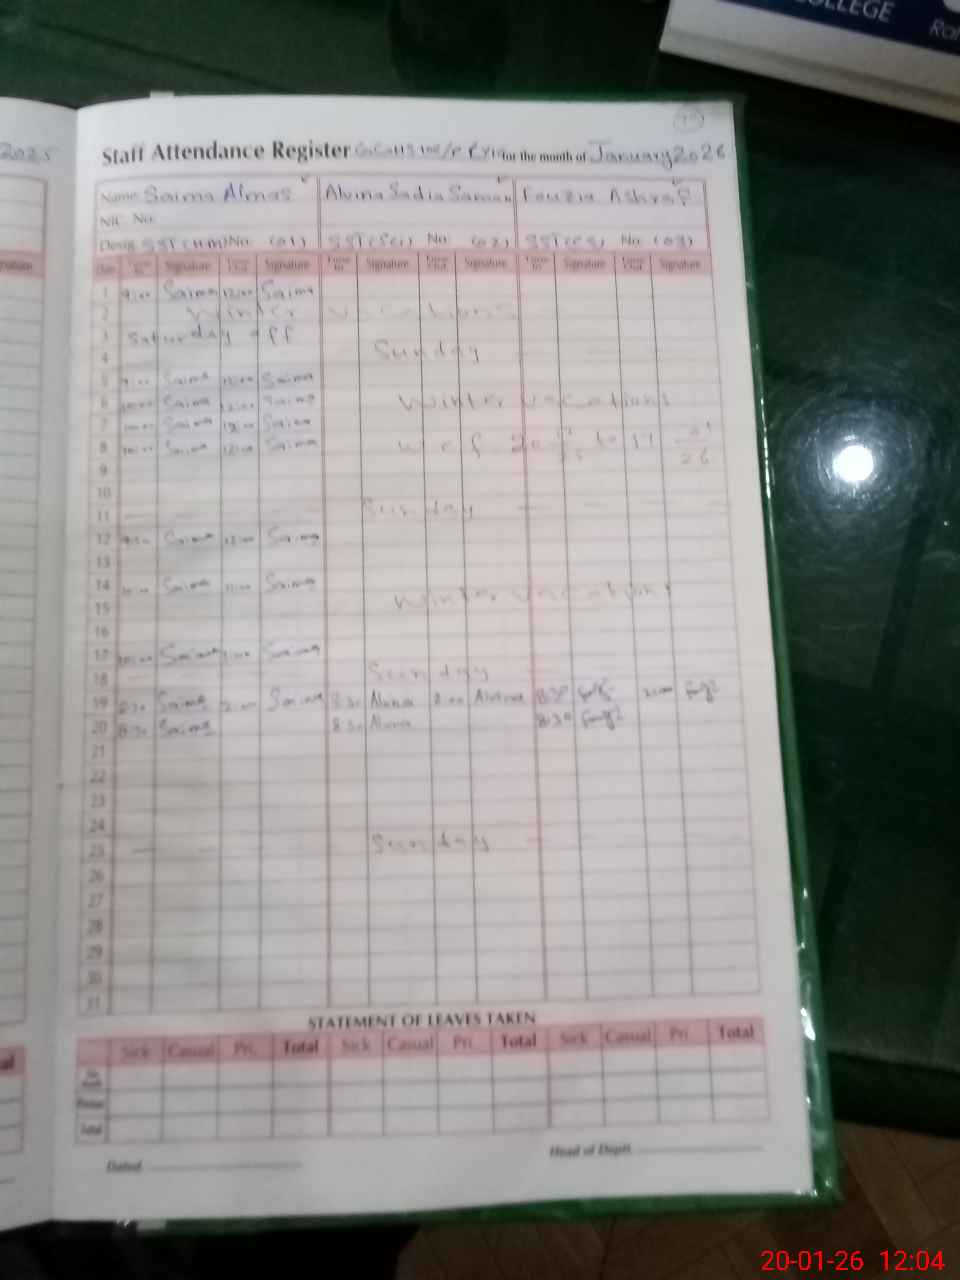 COLLEGE
2025
Staff Attendance Register for the month of January 2026
Name Saima Almas Alvina Sadia Saman Fouzia Ashraf
NIC. No.
Desig. SST No: (01) SST (Sci) No: (02) SST No: (03)
Date Time In Signature Time Out Signature Time In Signature Time Out Signature Time In Signature Time Out Signature
1 9:00 Saima 12:00 Saima
2 Winter Vacations
3 Saturday off
4 Sunday
5 9:00 Saima 12:00 Saima
6 10:00 Saima 12:00 Saima Winter vacations
7 10:00 Saima 12:00 Saima
8 10:00 Saima 12:00 Saima w.e.f 20 to 17 01/26
9
10
11 Sunday
12 9:00 Saima 12:00 Saima
13
14 Saima Saima
15 Winter vacations
16
17 10:00 Saima Saima
18 Sunday
19 8:30 Saima 2:00 Saima 8:30 Alvina 2:00 Alvina 8:30 2:00
20 8:30 Saima 8:30 Alvina 8:30
21
22
23
24
25 Sunday
26
27
28
29
30
31
STATEMENT OF LEAVES TAKEN
Sick Casual Pri. Total Sick Casual Pri. Total Sick Casual Pri. Total
Total
Dated
Head of Deptt.
20-01-26 12:04